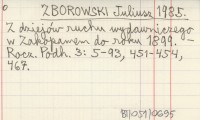 ZBOROWSKI Juliusz 1985.
Z dziejów ruchu wydawniczego
w Zakopanem do roku 1899. -
Rocz. Podh. 3: 5-93, 451-454,
467.
BT/051/0695